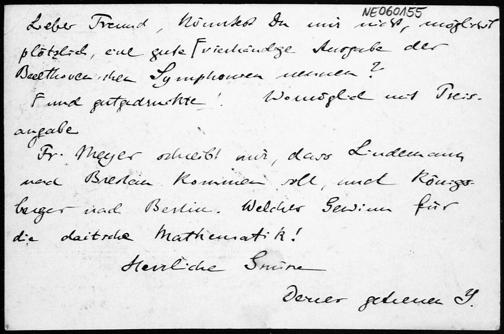 NE060155
Lieber Freund, Könntest Du mir nicht, möglichst
plötzlich, eine gute vierhändige Ausgabe der
Beethoven'schen Symphonien nennen?
und gutgedruckte! Womöglich mit Preis-
angabe
Fr. Meyer schreibt mir, dass Lindemann
nach Breslau kommen soll, und Königs-
berger nach Berlin. Welcher Gewinn für
die deutsche Mathematik!
Herzliche Grüsse
Deines getreuen